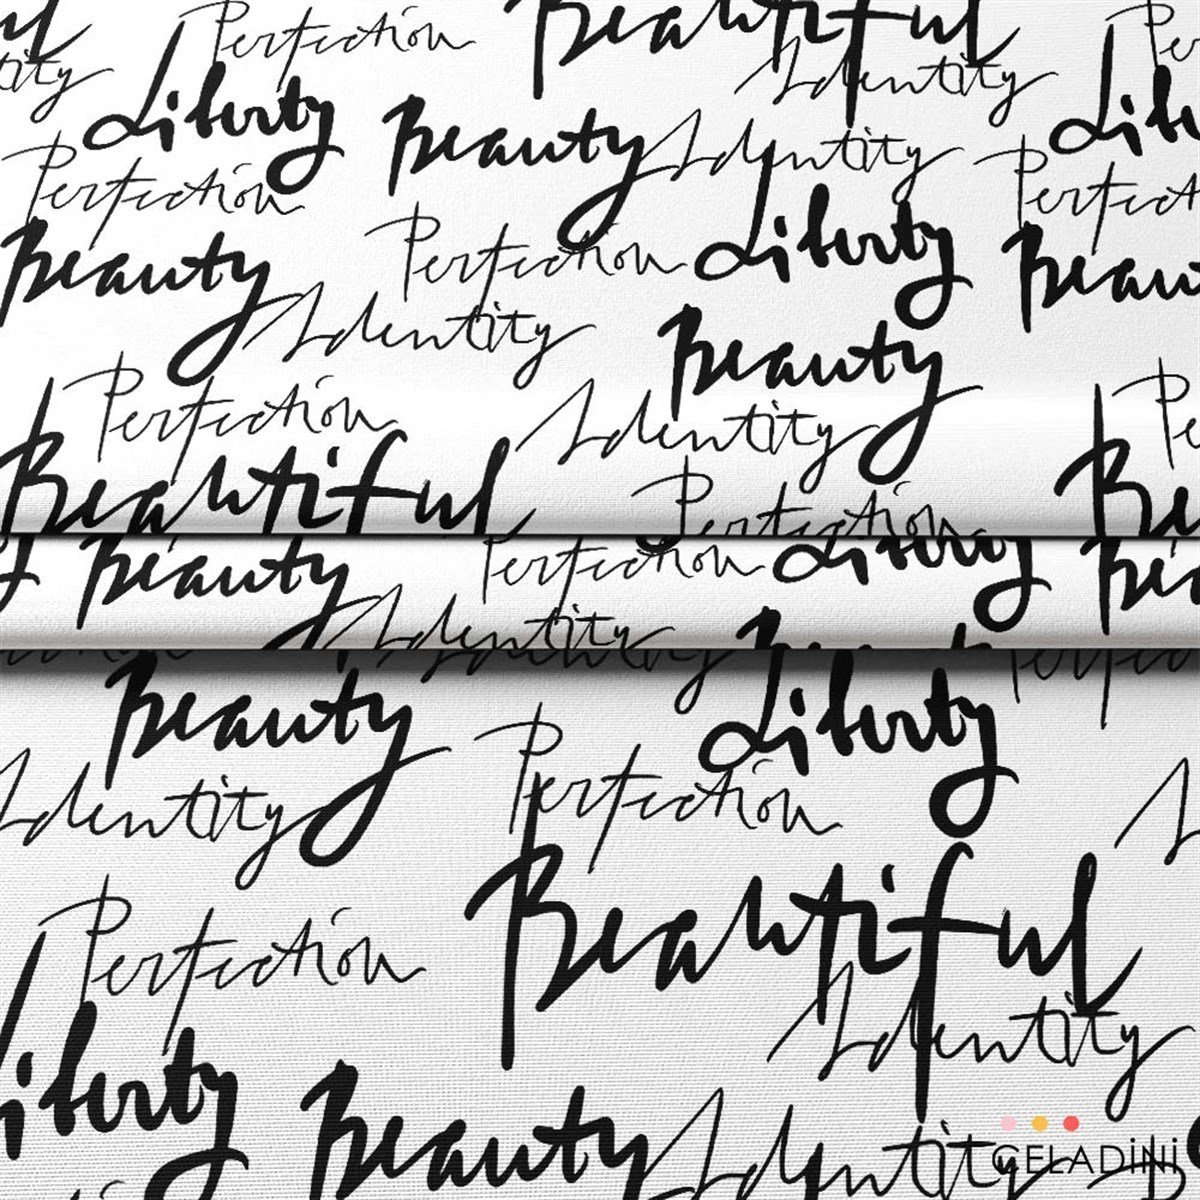 Perfection Beautiful
Identity
Liberty Beauty Identity
Perfection Perfection
Beauty Perfection Liberty
Identity Beauty
Perfection Identity
Beautiful Perfection
Beauty Perfection Liberty
Identity
Beauty Perfection Liberty
Identity
Perfection Beautiful
Identity
Liberty Beauty Identity
GELADİNİ